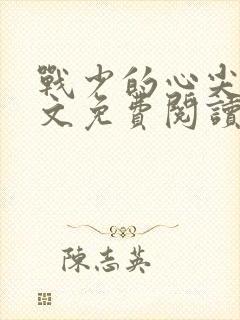 戰少的心尖
文免費閱讀
陳志英